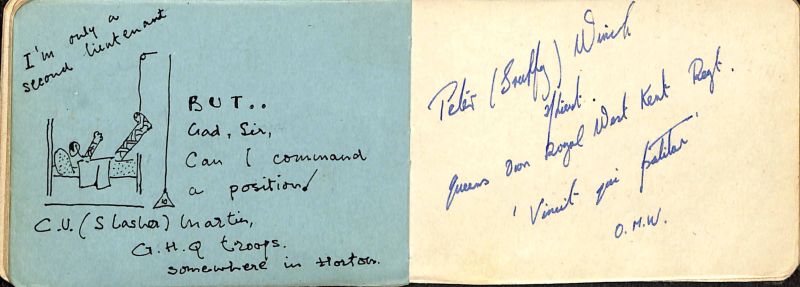 I'm only a
second lieutenant
BUT..
Gad, Sir,
Can I command
a position!
C.V. (Slasher) Martin,
G.H.Q troops.
somewhere in Horton.
Peter (Snuffy) Winch
2/Lieut.
Queens Own Royal West Kent Regt.
'Vincit qui patitur'
O.M.W.